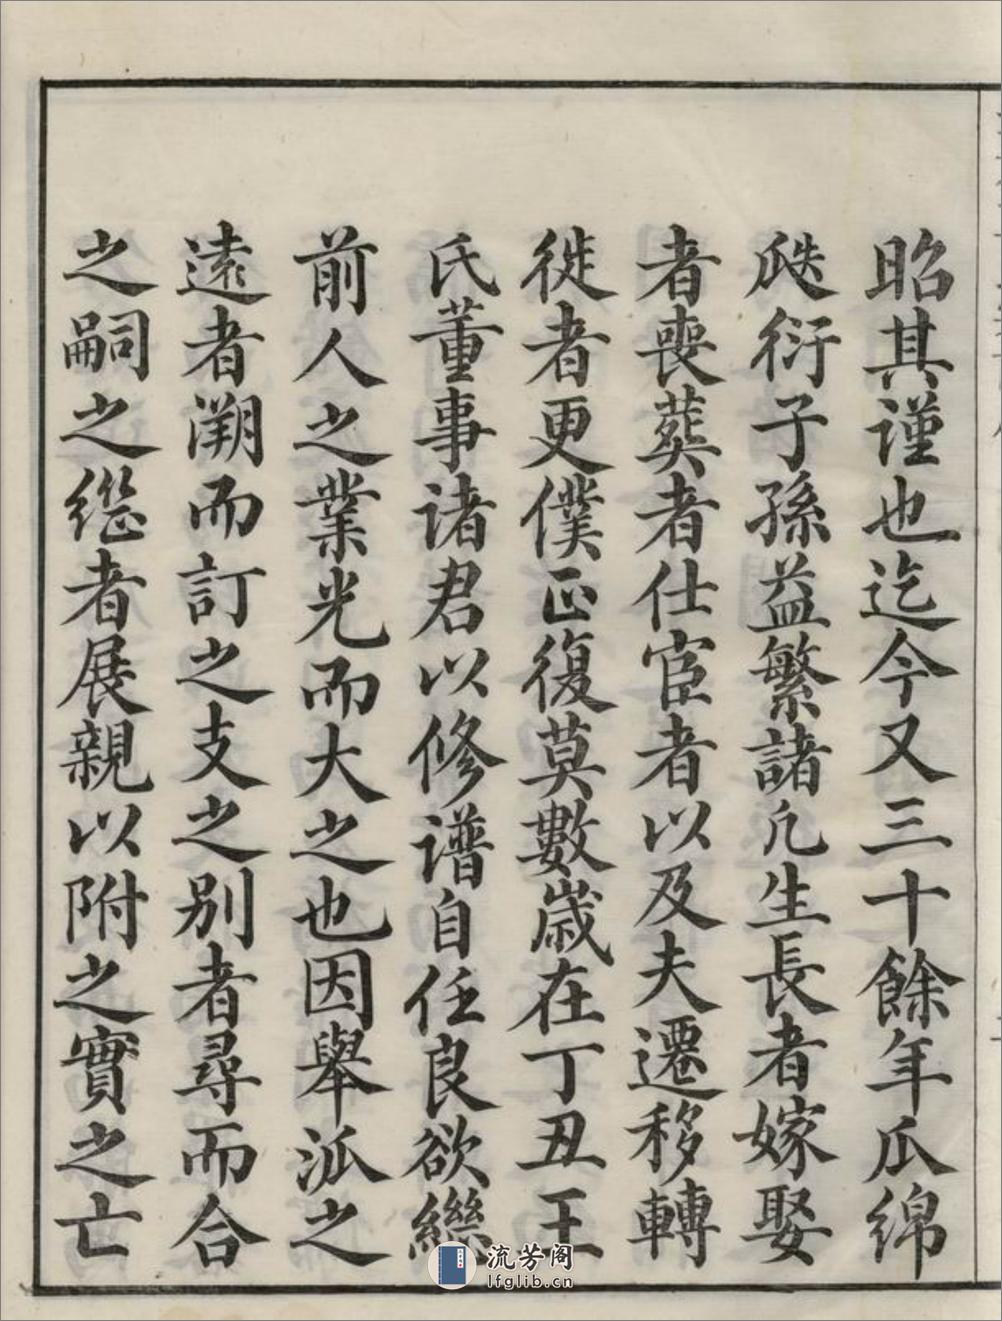 昭其谨也迄今又三十餘年瓜綿
瓞衍子孫益繁諸凢生長者嫁娶
者喪葬者仕宦者以及夫遷移轉
徙者更僕正復莫數歲在丁丑王
氏董事诸君以修谱自任良欲繼
前人之業光而大之也因舉派之
遠者溯而訂之支之别者尋而合
之嗣之继者展親以附之實之亡
流芳阁
lfglib.cn